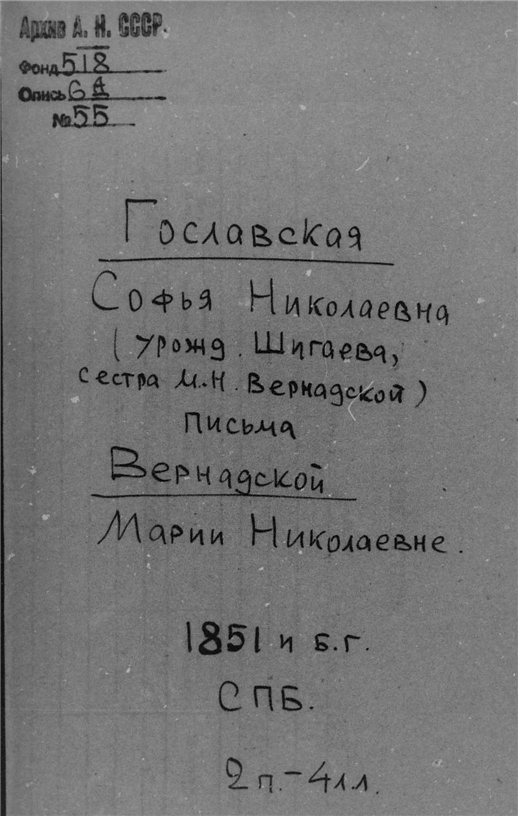 Архив А. Н. СССР.
Фонд 518
Опись 6 А
№ 55
Гославская
Софья Николаевна
(урожд. Шигаева,
сестра М.Н. Вернадской)
письма
Вернадской
Марии Николаевне.
1851 и б.г.
СПБ.
2 п. – 4 л.л.